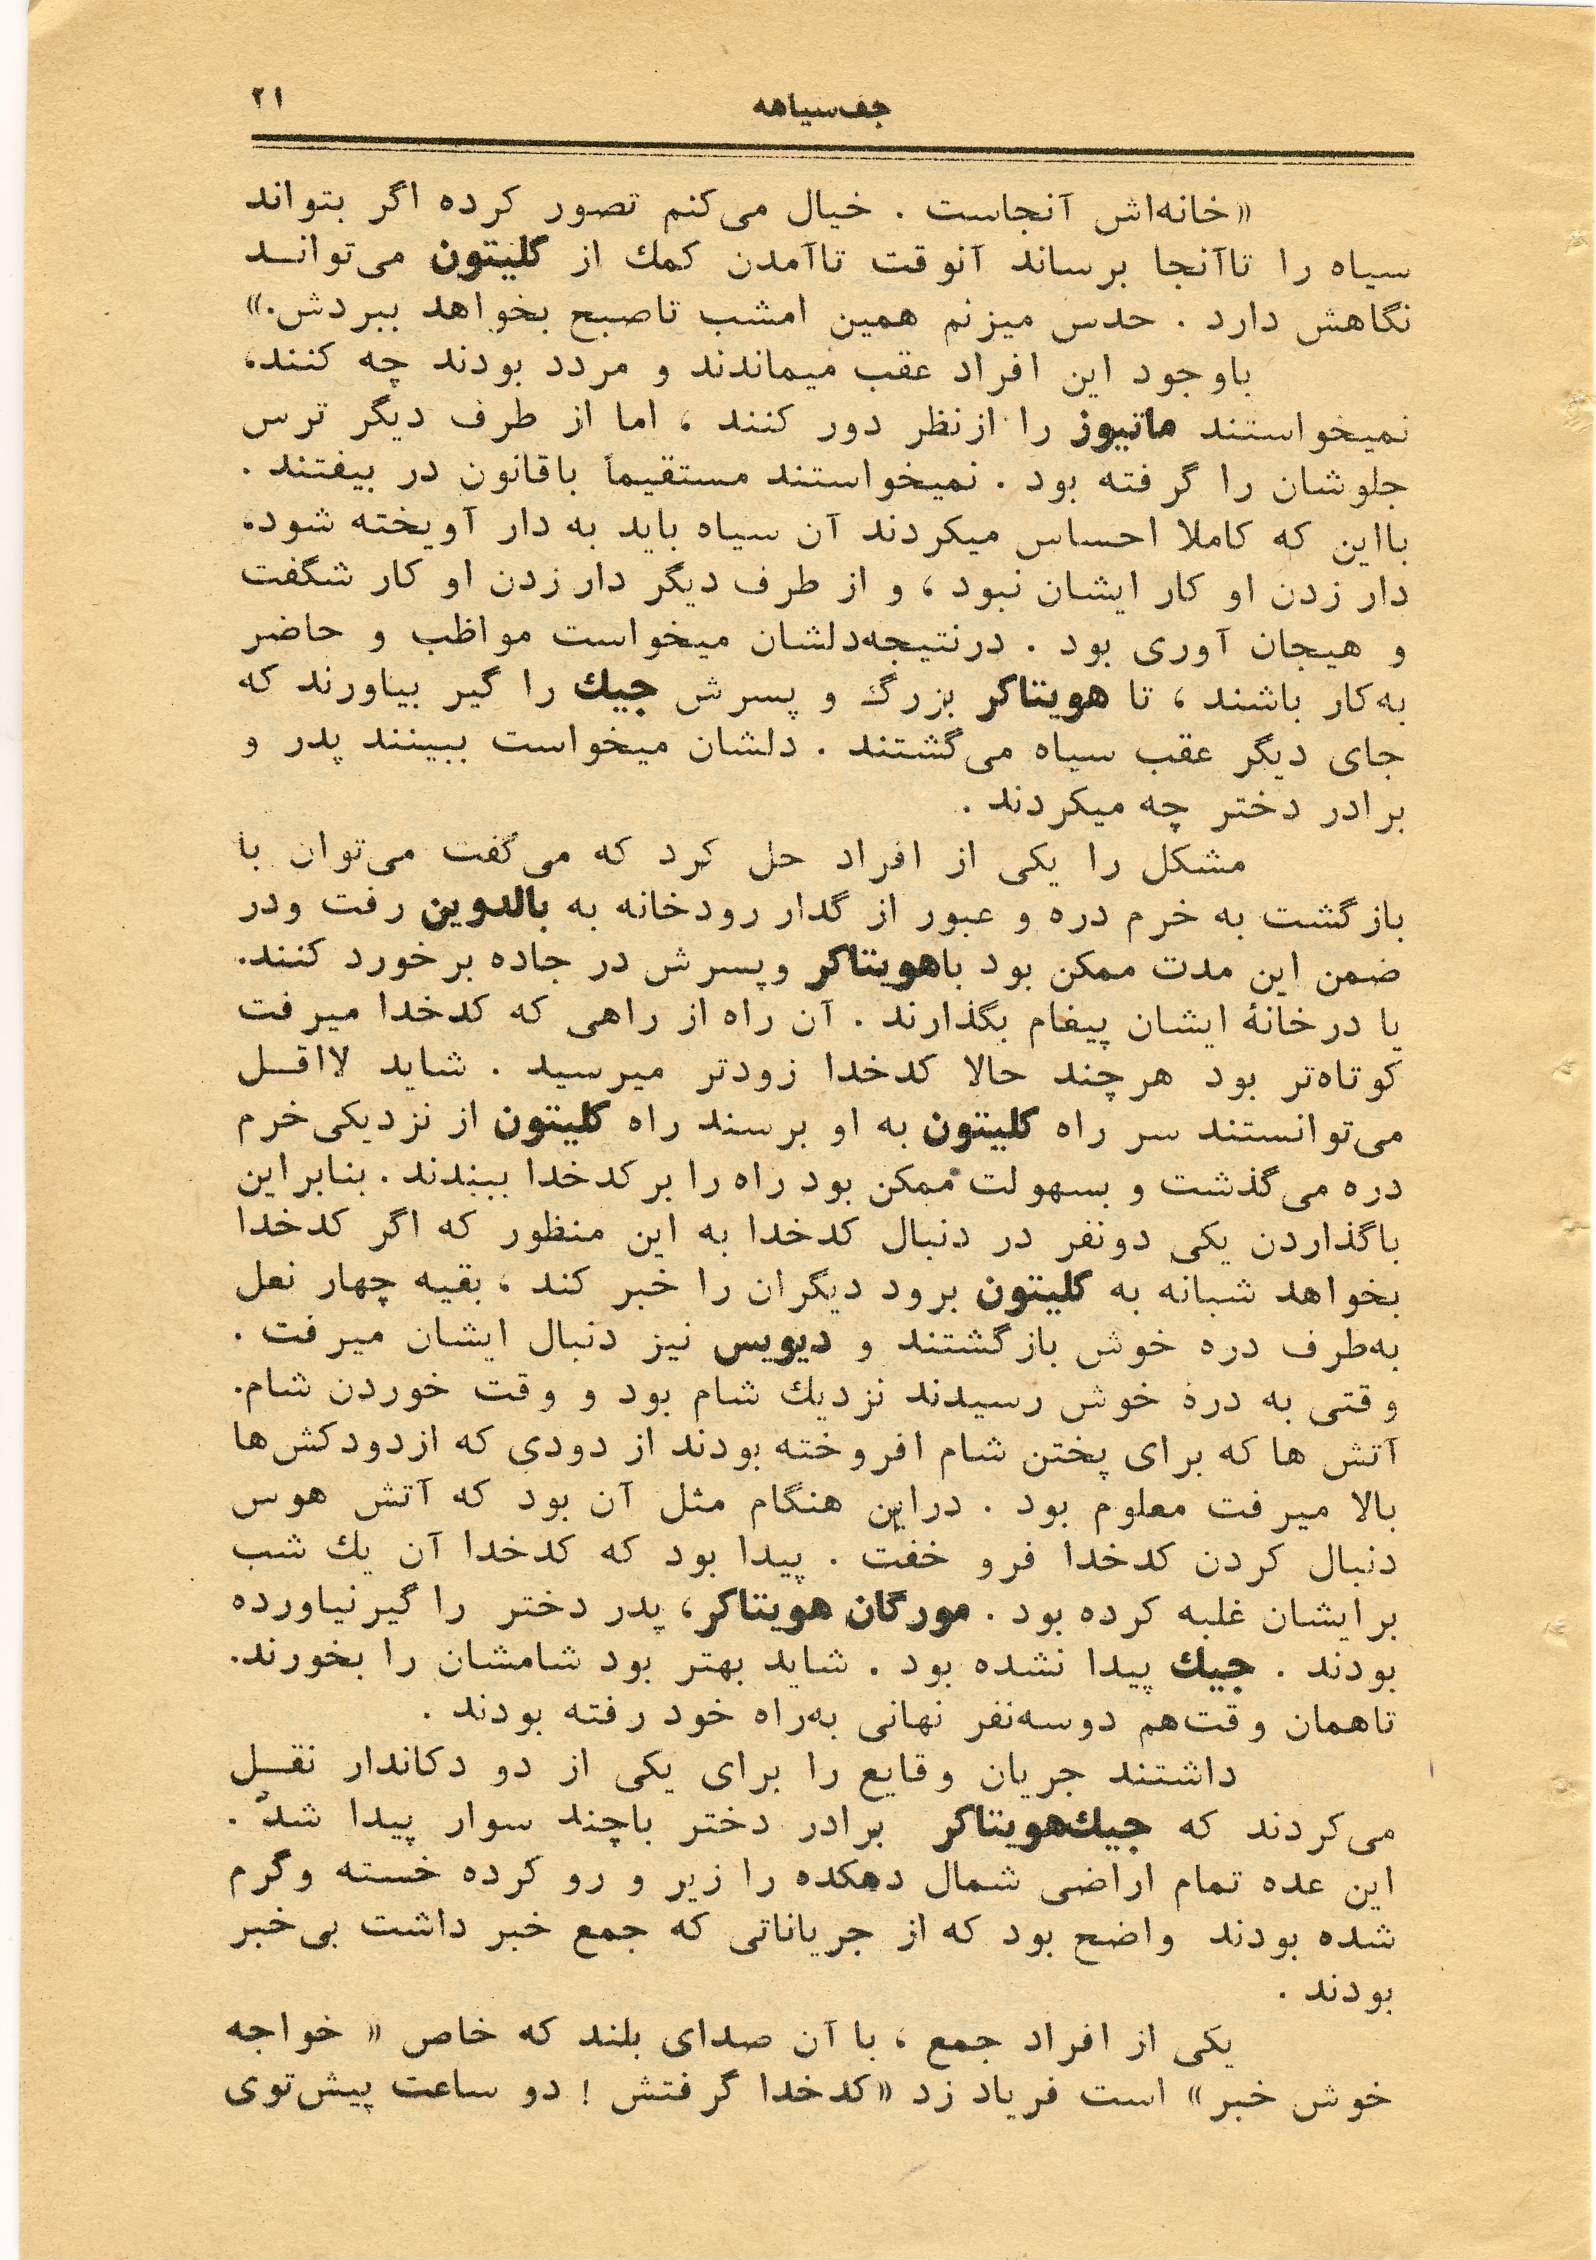 جف‌سیاهه
۲۱
«خانه‌اش آنجاست . خیال می‌کنم تصور کرده اگر بتواند
سیاه را تاآنجا برساند آنوقت تاآمدن کمك از کلیتون می‌توانـد
نگاهش دارد . حدس میزنم همین امشب تاصبح بخواهد ببردش.»
باوجود این افراد عقب میماندند و مردد بودند چه کنند.
نمیخواستند ماتیوز را ازنظر دور کنند ، اما از طرف دیگر ترس
جلوشان را گرفته بود . نمیخواستند مستقیماً باقانون در بیفتند .
بااین که کاملا احساس میکردند آن سیاه باید به دار آویخته شود.
دار زدن او کار ایشان نبود ، و از طرف دیگر دار زدن او کار شگفت
و هیجان آوری بود . درنتیجه‌دلشان میخواست مواظب و حاضر
به‌کار باشند ، تا هویتاکر بزرگ و پسرش جیك را گیر بیاورند که
جای دیگر عقب سیاه می‌گشتند . دلشان میخواست ببینند پدر و
برادر دختر چه میکردند .
مشکل را یکی از افراد حل کرد که می‌گفت می‌توان با
بازگشت به خرم دره و عبور از گدار رودخانه به بالدوین رفت ودر
ضمن این مدت ممکن بود باهویتاکر وپسرش در جاده برخورد کنند.
یا درخانهٔ ایشان پیغام بگذارند . آن راه از راهی که کدخدا میرفت
کوتاه‌تر بود هرچند حالا کدخدا زودتر میرسید . شاید لااقـل
می‌توانستند سر راه کلیتون به او برسند راه کلیتون از نزدیکی‌خرم
دره می‌گذشت و بسهولت ممکن بود راه را برکدخدا ببندند . بنابراین
باگذاردن یکی دونفر در دنبال کدخدا به این منظور که اگر کدخدا
بخواهد شبانه به کلیتون برود دیگران را خبر کند ، بقیه چهار نعل
به‌طرف دره خوش بازگشتند و دیویس نیز دنبال ایشان میرفت .
وقتی به درهٔ خوش رسیدند نزدیك شام بود و وقت خوردن شام.
آتش ها که برای پختن شام افروخته بودند از دودی که ازدودکش‌ها
بالا میرفت معلوم بود . دراین هنگام مثل آن بود که آتش هوس
دنبال کردن کدخدا فرو خفت . پیدا بود که کدخدا آن یك شب
برایشان غلبه کرده بود . مورگان هویتاکر، پدر دختر را گیرنیاورده
بودند . جیك پیدا نشده بود . شاید بهتر بود شامشان را بخورند.
تاهمان وقت‌هم دوسه‌نفر نهانی به‌راه خود رفته بودند .
داشتند جریان وقایع را برای یکی از دو دکاندار نقـل
می‌کردند که جیك‌هویتاکر برادر دختر باچند سوار پیدا شد .
این عده تمام اراضی شمال دهکده را زیر و رو کرده خسته وگرم
شده بودند واضح بود که از جریاناتی که جمع خبر داشت بی‌خبر
بودند .
یکی از افراد جمع ، با آن صدای بلند که خاص « خواجه
خوش خبر» است فریاد زد «کدخدا گرفتش ! دو ساعت پیش‌توی